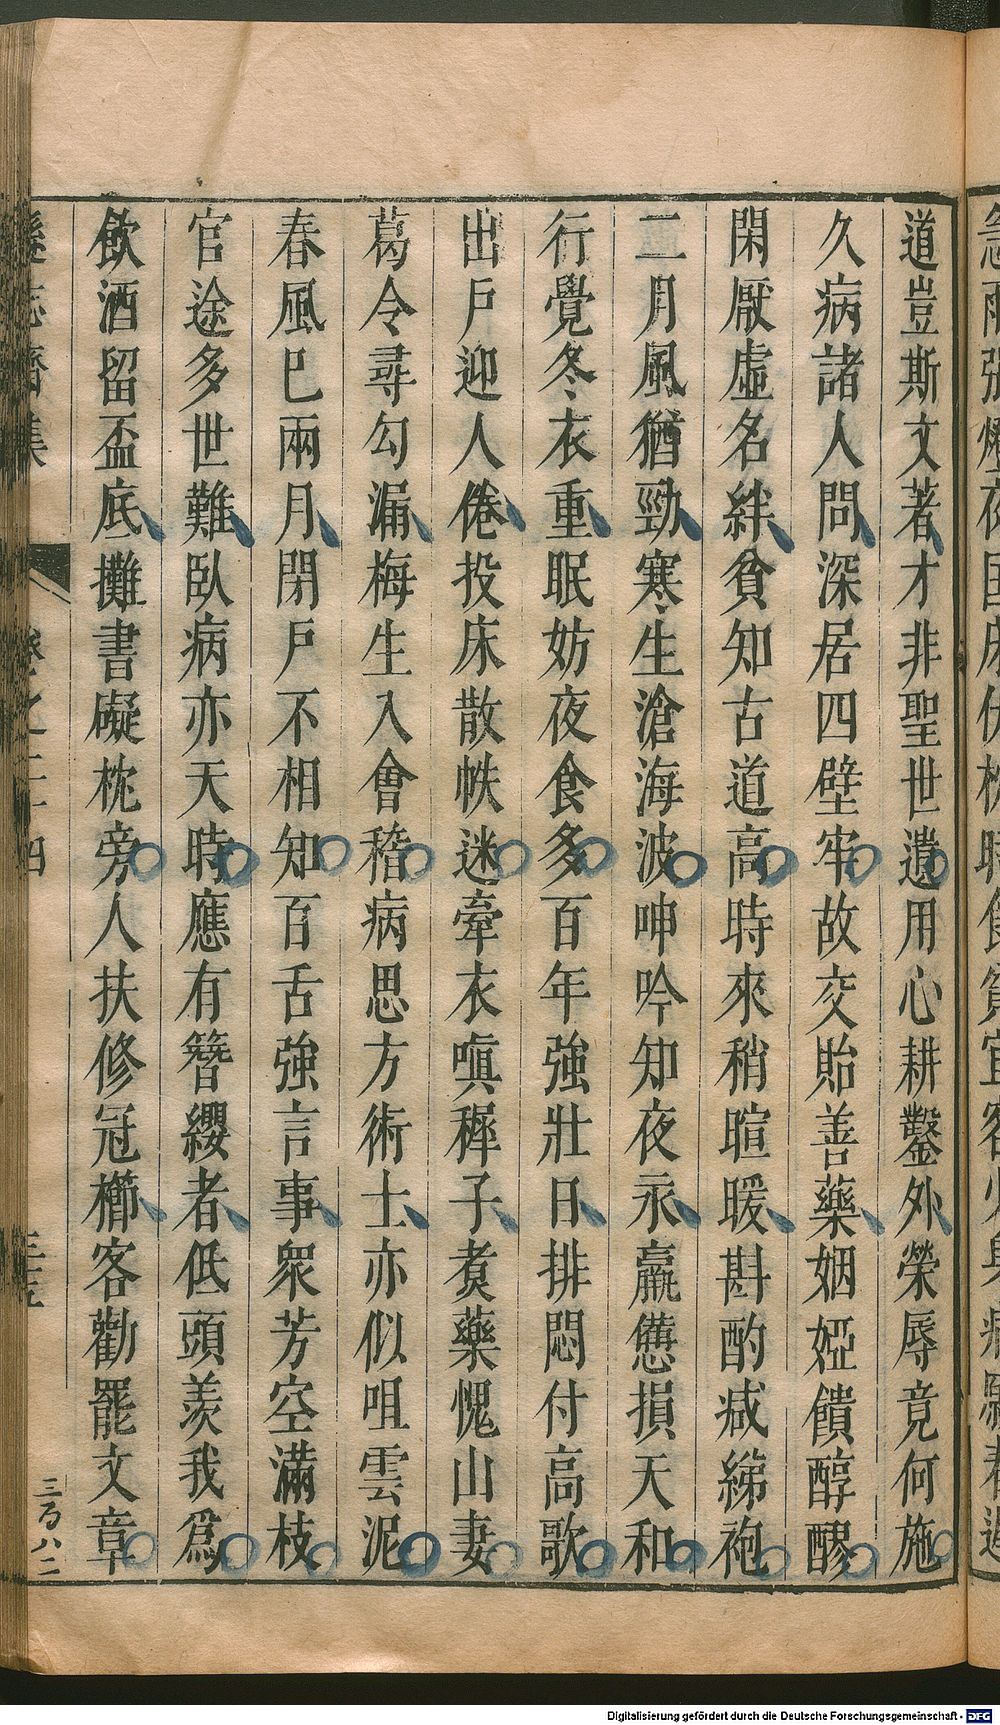 道豈斯文著才非聖世遺用心耕鑿外榮辱竟何施
久病諸人問深居四壁牢故交貽善藥姻婭饋醇醪
閑厭虛名絆貧知古道高時來稍暄暖斟酌減綈袍
二月風猶勁寒生滄海波呻吟知夜永羸憊損天和
行覺冬衣重眠妨夜食多百年強壯日排悶付高歌
出戶迎人倦投床散帙迷牽衣嗔穉子煮藥愧山妻
葛令尋勾漏梅生入會稽病思方術士亦似咀雲泥
春風巳兩月閉戶不相知百舌強言事衆芳空滿枝
官途多世難臥病亦天時應有簪纓者低頭羡我爲
飲酒留盃底攤書礙枕旁人扶修冠櫛客勸罷文章
卷之二十四
三五
三百八二
Digitalisierung gefördert durch die Deutsche Forschungsgemeinschaft - DFG